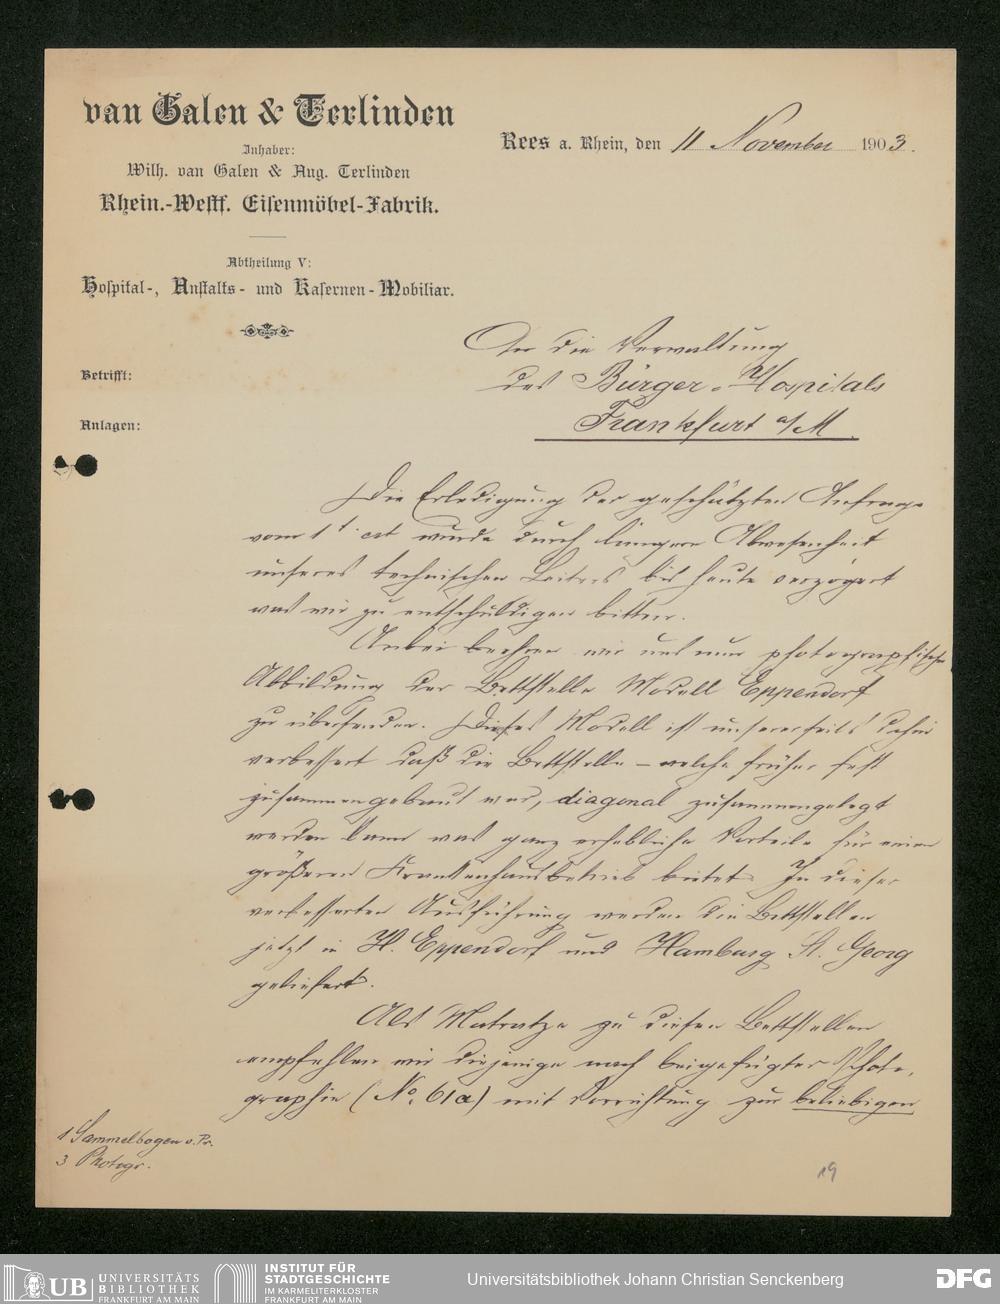 van Galen & Terlinden
Inhaber:
Wilh. van Galen & Aug. Terlinden
Rhein.-Westf. Eisenmöbel-Fabrik.
Abtheilung V:
Hospital-, Anstalts- und Kasernen-Mobiliar.
Rees a. Rhein, den 11 November 1903.
Betrifft:
Anlagen:
An die Verwaltung
des Bürger-Hospitals
Frankfurt a/M
Die Erledigung der geschätzten Anfrage
vom 1t. cst wurde durch längere Abwesenheit
unseres technischen Leiters bis heute verzögert
was wir zu entschuldigen bitten.
Anbei beehren wir uns nun photographische
Abbildung der Bettstelle Modell Eppendorf
zu übersenden. Dieses Modell ist unsererseits dahin
verbessert daß die Bettstelle – welche früher fest
zusammengebaut war, diagonal zusammengelegt
werden kann was ganz erhebliche Vorteile für einen
größeren Krankenhausbetrieb bietet. In dieser
verbesserten Ausführung werden die Bettstellen
jetzt in H. Eppendorf und Hamburg St. Georg
geliefert.
Als Matratze zu diesen Bettstellen
empfehlen wir diejenige nach beigefügter Photo-
graphie (No. 61a) mit Vorrichtung zur beliebigen
1 Sammelbogen v. Pr.
3 Photogr.
19
UB UNIVERSITÄTS
BIBLIOTHEK
FRANKFURT AM MAIN
INSTITUT FÜR
STADTGESCHICHTE
IM KARMELITERKLOSTER
FRANKFURT AM MAIN
Universitätsbibliothek Johann Christian Senckenberg
DFG